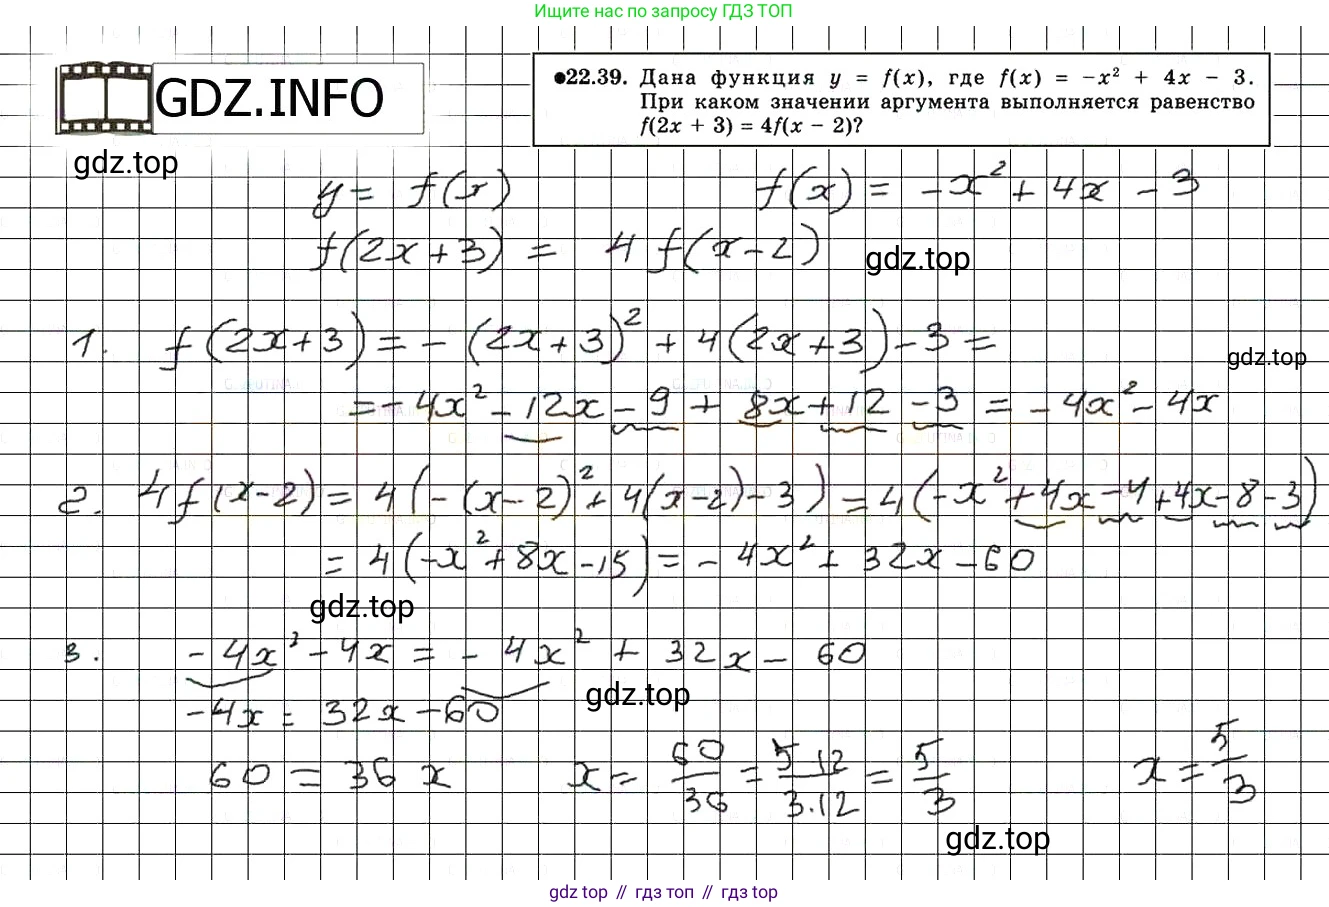 Ищите нас по запросу ГДЗ ТОП
GDZ.INFO
gdz.top
●22.39. Дана функция y = f(x), где f(x) = −x² + 4x − 3.
При каком значении аргумента выполняется равенство
f(2x + 3) = 4f(x − 2)?
y = f(x) f(x) = −x² + 4x − 3
f(2x+3) = 4f(x−2)
gdz.top
1. f(2x+3) = −(2x+3)² + 4(2x+3) − 3 =
gdz.top
= −4x² − 12x − 9 + 8x + 12 − 3 = −4x² − 4x
2. 4f(x−2) = 4(−(x−2)² + 4(x−2) − 3) = 4(−x² + 4x − 4 + 4x − 8 − 3)
= 4(−x² + 8x − 15) = −4x² + 32x − 60
gdz.top
3. −4x² − 4x = −4x² + 32x − 60
gdz.top
−4x = 32x − 60
60 = 36x x = 60/36 = 5·12/3·12 = 5/3 x = 5/3
gdz.top
gdz top // гдз топ // гдз top